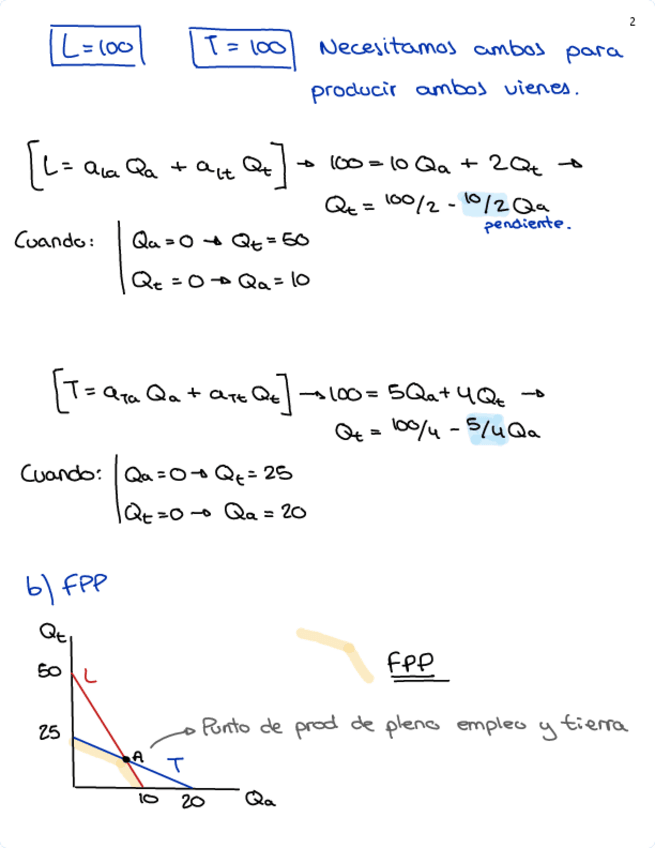 2
L = 100 T = 100 Necesitamos ambos para
producir ambos vienes.
[L = aLa Qa + aLt Qt] → 100 = 10 Qa + 2Qt →
Qt = 100/2 - 10/2 Qa
pendiente.
Cuando: Qa = 0 → Qt = 50
Qt = 0 → Qa = 10
[T = aTa Qa + aTt Qt] → 100 = 5Qa + 4Qt →
Qt = 100/4 - 5/4 Qa
Cuando: Qa = 0 → Qt = 25
Qt = 0 → Qa = 20
b) FPP
Qt
50 L
FPP
25 Punto de prod de pleno empleo y tierra
A T
10 20 Qa